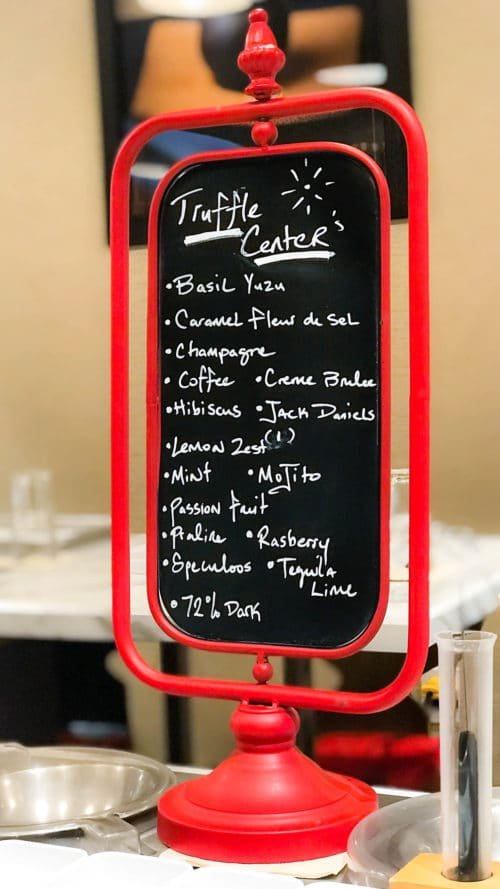 Truffle
Center's
• Basil Yuzu
• Caramel fleur de Sel
• Champagne
• Coffee • Creme Brulee
• Hibiscus • Jack Daniels
• Lemon Zest (1)
• Mint • Mojito
• Passion fruit
• Praline • Rasberry
• Speculoos • Tequila
Lime
• 72% Dark